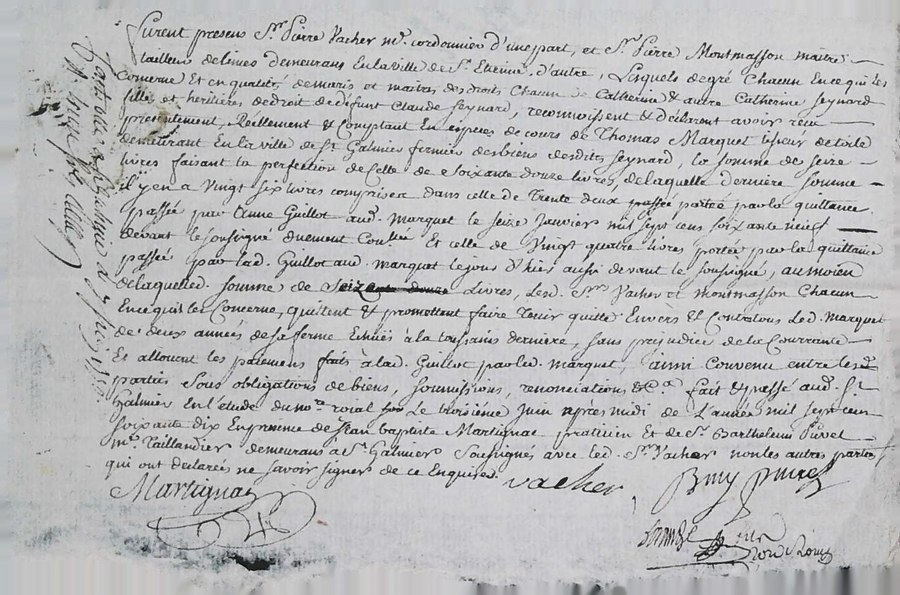 furent presens Sr. Pierre Vacher me. cordonnier d'une part, et Sr. Pierre Montmasson maitre
tailleur de limes demeurans En la ville de St. Etienne, d'autre, Lesquels de gré Chacun En ce qui les
Concerne Et en qualité de maris et maitres des droits Chacun de Catherine & autre Catherine Seynard
fille et heritieres de droit de défunt Claude Seynard, reconnoissent & declarent avoir recu
presentement, Réellement & Comptant En espèces de cours de Thomas Marquet tisseur de toile
demeurant En la ville de St. Galmier fermier des biens desdits Seynard, la somme de seize
livres faisant la perfection de Celle de soixante douze livres, de laquelle derniere somme
il y en a Vingt six livres comprises dans celle de Trente deux portée par la quittance
passée par Anne Guillot aud. Marquet le seize Janvier mil sept cens soixante neuf
devant le soussigné duement Con.lée Et celle de Vingt quatre livres portée par la quittance
passée par lad. Guillot aud. marquet le jour d'hier aussi devant le soussigné, au moien
de laquelle d. somme de Seize Livres, Lesd. Srs. Vacher et Montmasson Chacun
En ce qui les Concerne, quittent & promettent faire Tenir quitte Envers & Contre tous led. Marquet
de deux années de sa ferme Echues à la toussains derniere, sans prejudice de la Courrante
Et allouent les paiemens faits à lad. Guillot par led. marquet, ainsi Convenu entre lesd.
parties Sous obligations de biens, soumissions, renonciations & C.a fait & passé aud. St.
Galmier En l'étude du no.re roial Le troisième Juin après midi de L'année mil sept cens
soixante dix En presence de Jean Baptiste Martignac praticien Et de Sr. Barthelemi Puret
me. Taillandier demeurans a St. Galmier Soussignés avec led. Sr. Vacher non les autres parties
qui ont declarées ne savoir signer de ce Enquises.
Vacher
Martignac